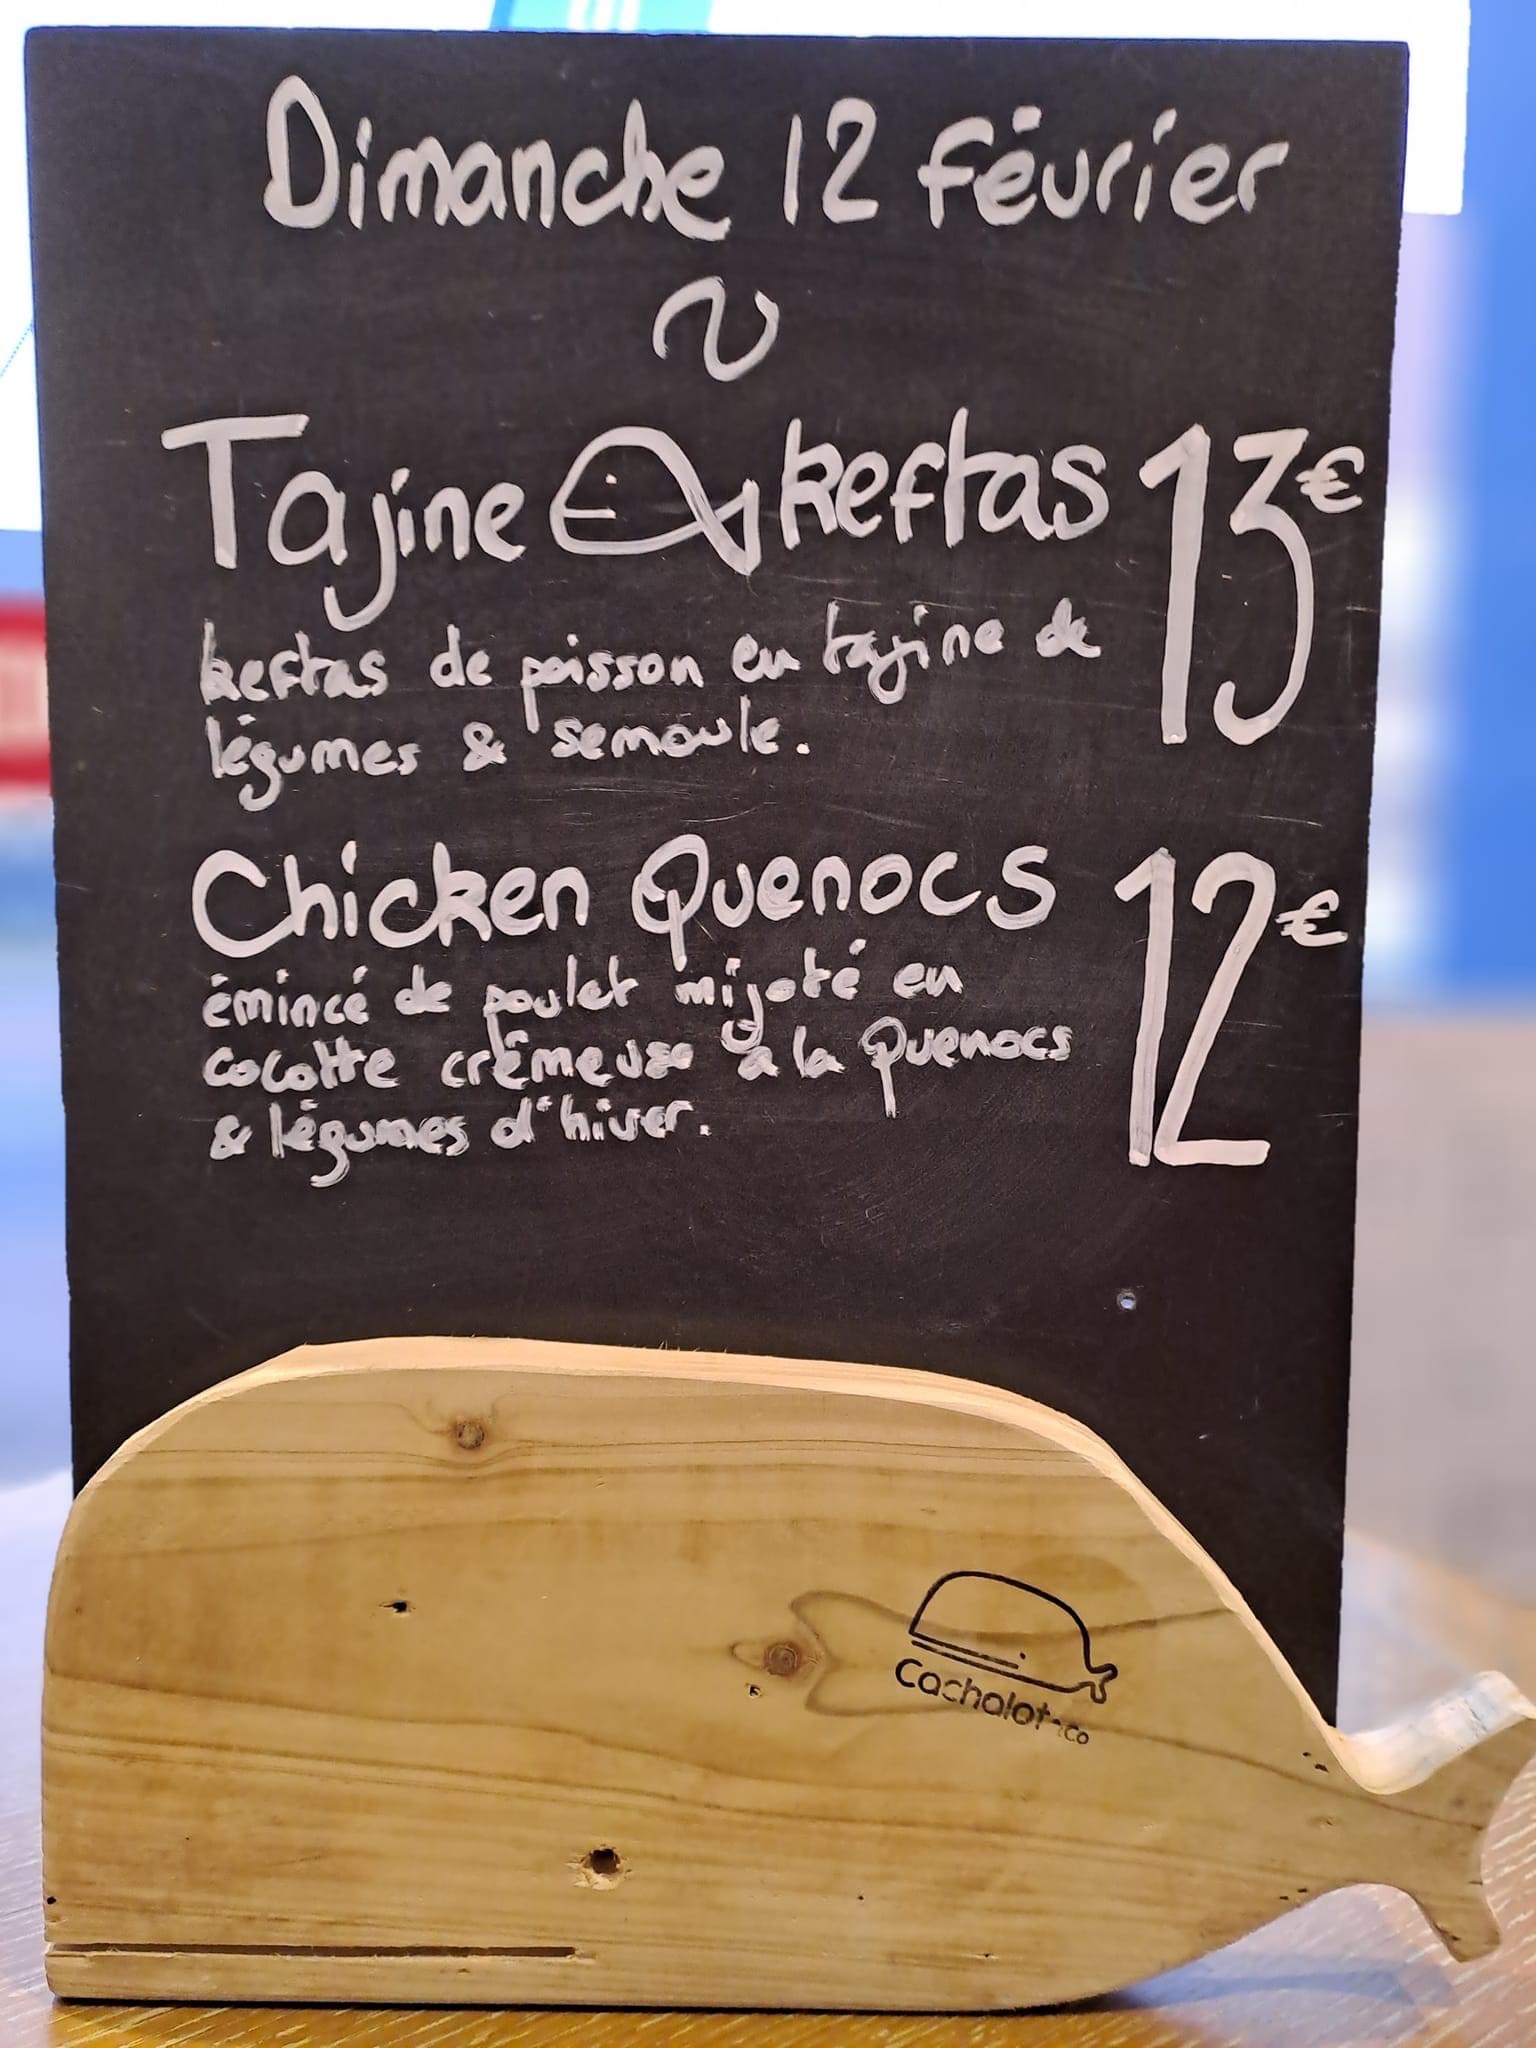 Dimanche 12 février
Tajine keftas 13€
keftas de poisson en tajine de
légumes & semoule.
Chicken Quenocs 12€
émincé de poulet mijoté en
cocotte crêmeuse à la Quenocs
& légumes d'hiver.
Cachalot&co